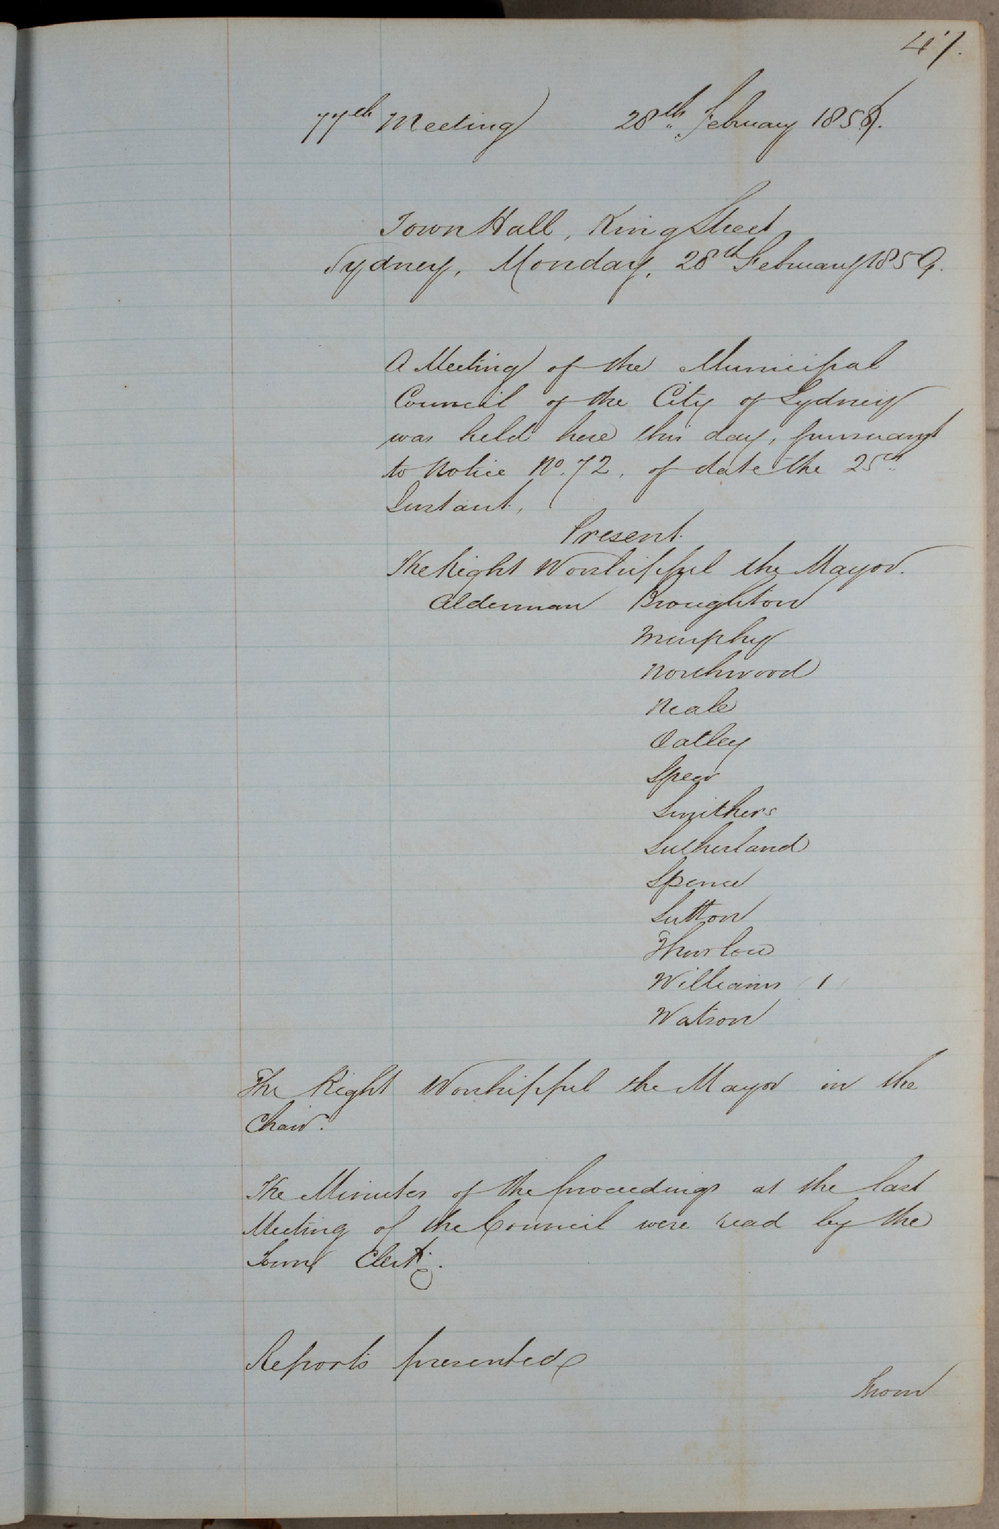 47.
77th Meeting 28th February 1859.
Town Hall, King Street
Sydney, Monday, 28th February 1859.
A Meeting of the Municipal
Council of the City of Sydney
was held here this day, pursuant
to Notice No. 72, of date the 25th
Instant,
Present.
The Right Worshipful the Mayor.
Alderman Broughton
Murphy
Northwood
Neale
Oatley
Speer
Smithers
Sutherland
Spence
Sutton
Thurlow
Williams 1
Watson
The Right Worshipful the Mayor in the
Chair.
The Minutes of the proceedings at the last
Meeting of the Council were read by the
Town Clerk.
Reports presented
From